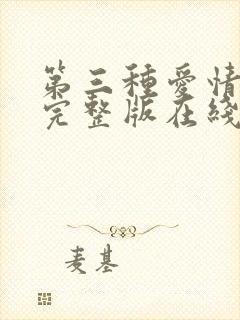 第三種愛情
完整版在綫
麦基